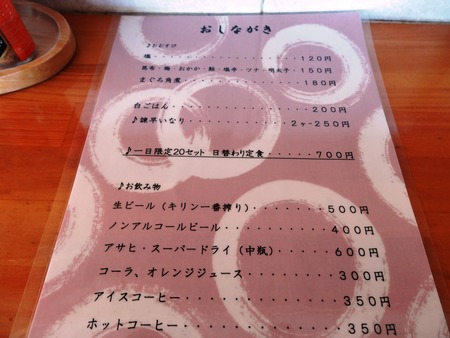 おしながき
♪おむすび
塩・・・・・・・・・・・・・・・・・120円
昆布・梅・おかか・鮭・塩辛・ツナ・明太子・150円
まぐろ角煮・・・・・・・・・・・・・180円
白ごはん・・・・・・・・・・・・・200円
♪諫早いなり・・・・・・・・・・・2ヶ-250円
♪一日限定20セット 日替わり定食・・・・・・700円
♪お飲み物
生ビール（キリン一番搾り）・・・・・500円
ノンアルコールビール・・・・・・・・400円
アサヒ・スーパードライ（中瓶）・・・600円
コーラ、オレンジジュース・・・・・・300円
アイスコーヒー・・・・・・・・・・・350円
ホットコーヒー・・・・・・・・・・・350円